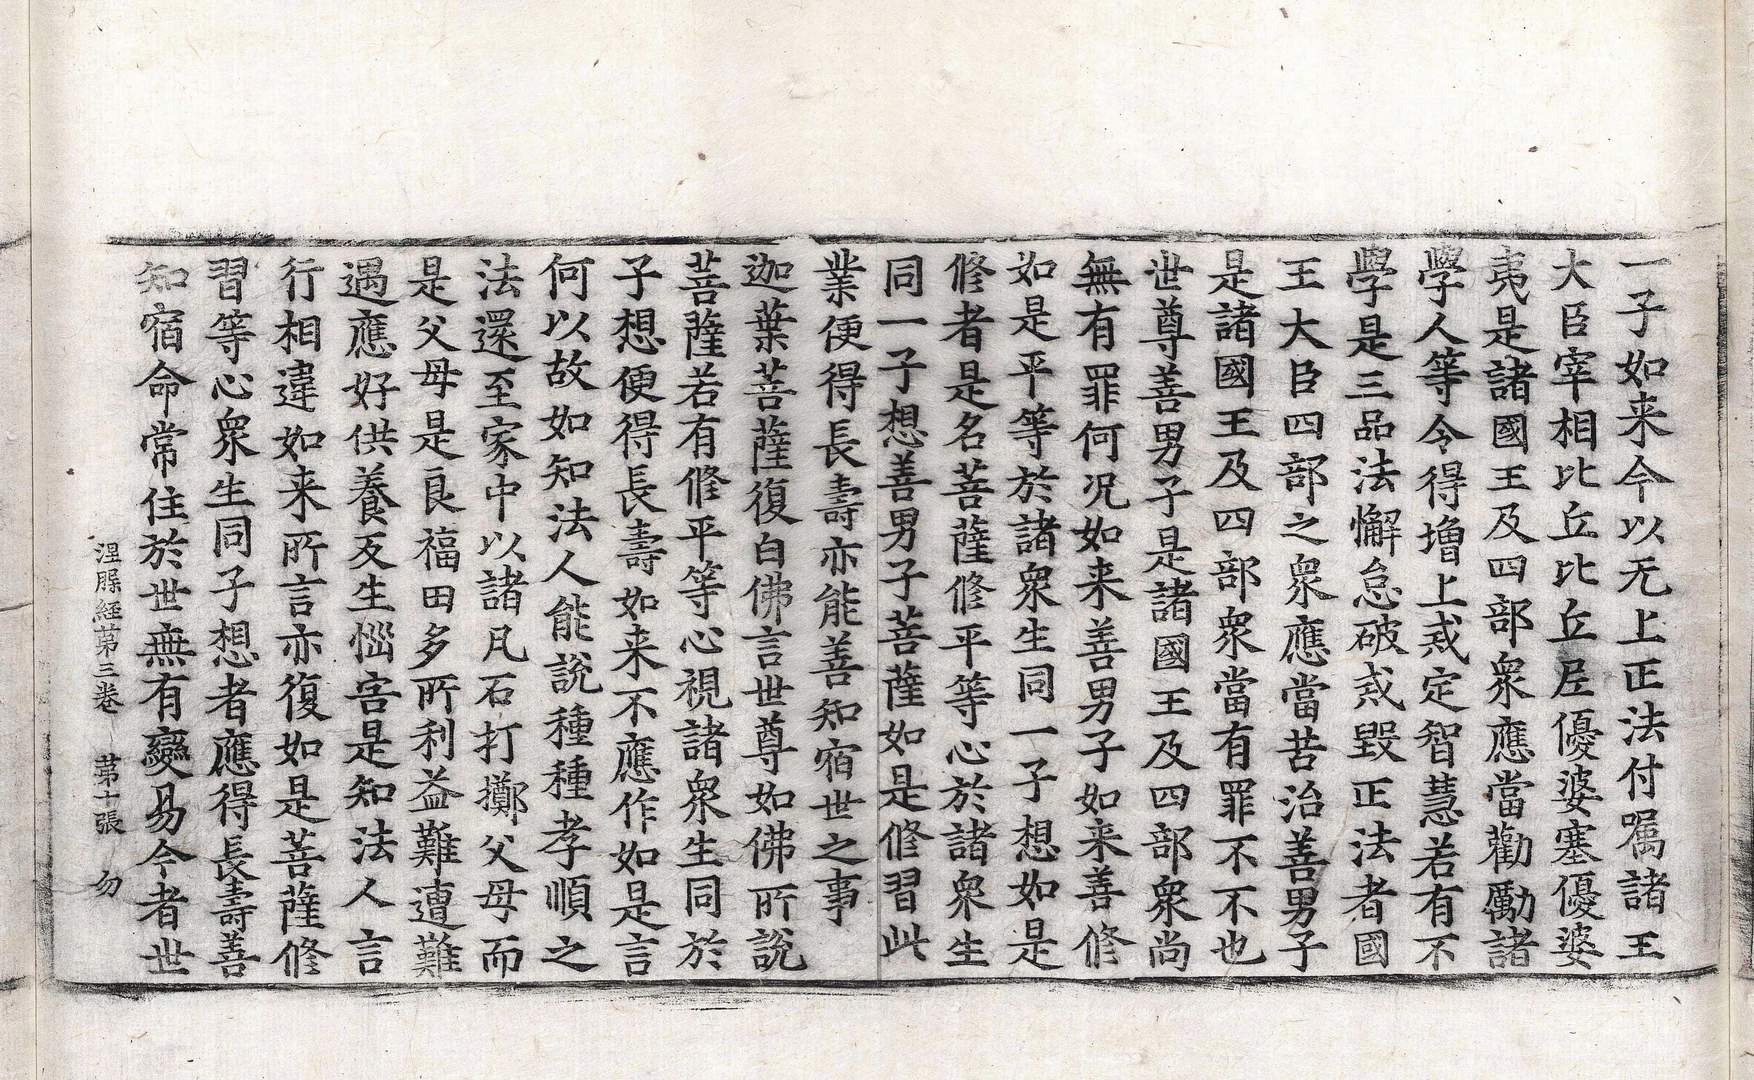 一子如来今以无上正法付嘱諸王
大臣宰相比丘比丘尼優婆塞優婆
夷是諸國王及四部衆應當勸勵諸
學人等令得增上戒定智慧若有不
學是三品法懈怠破戒毀正法者國
王大臣四部之衆應當苦治善男子
是諸國王及四部衆當有罪不不也
世尊善男子是諸國王及四部衆尚
無有罪何况如来善男子如来善修
如是平等於諸衆生同一子想如是
修者是名菩薩修平等心於諸衆生
同一子想善男子菩薩如是修習此
業便得長壽亦能善知宿世之事
迦葉菩薩復白佛言世尊如佛所說
菩薩若有修平等心視諸衆生同於
子想便得長壽如来不應作如是言
何以故如知法人能說種種孝順之
法還至家中以諸凡石打擲父母而
是父母是良福田多所利益難遭難
遇應好供養反生惱害是知法人言
行相違如来所言亦復如是菩薩修
習等心衆生同子想者應得長壽善
知宿命常住於世無有變易今者世
涅脲經第三卷 第十張 勿